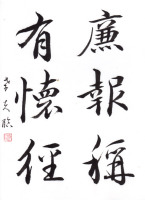 廉報稱
有懷徑